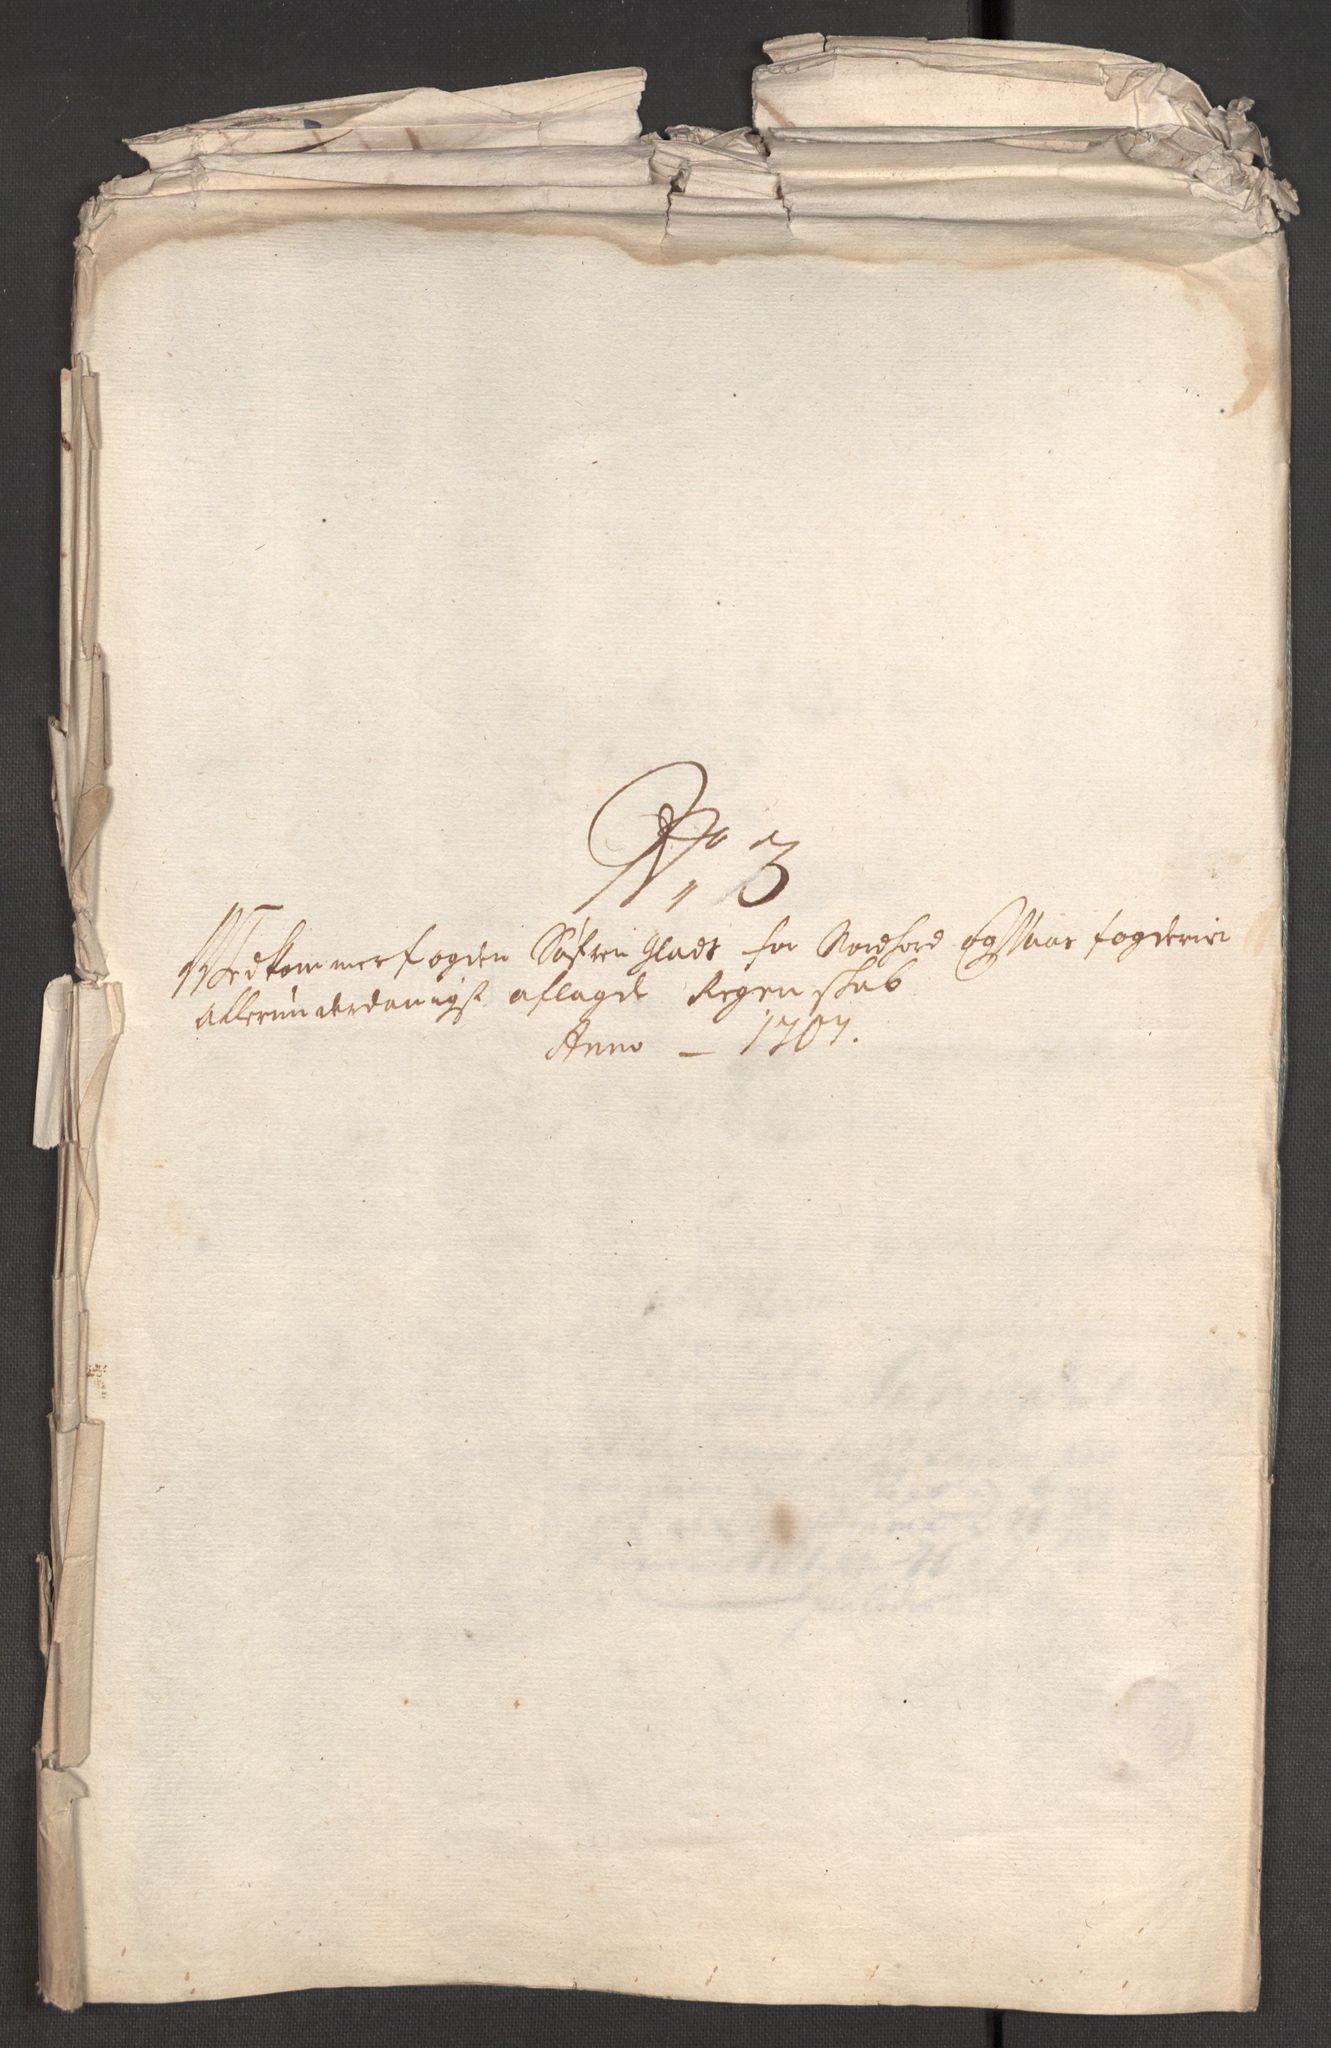 No 3
Wedkommer fogden Søfren Gladt for Nordhord og Waas fogderier
allerunderdanigst aflagde Regenskab
Anno – 1707.